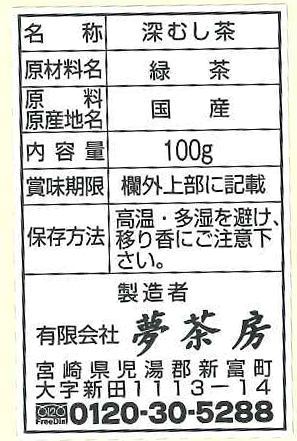 名称 深むし茶
原材料名 緑茶
原料
原産地名 国産
内容量 100g
賞味期限 欄外上部に記載
保存方法 高温・多湿を避け、
移り香にご注意下
さい。
製造者
有限会社 夢茶房
宮崎県児湯郡新富町
大字新田1113-14
FreeDial 0120-30-5288